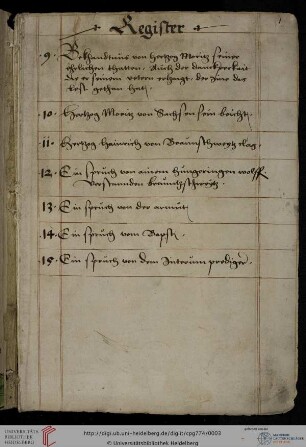 Register
9. Bekhandtnus von Hertzog Moritz seiner
ehrlichen thatten. Auch der danckparkait
die er seinem vetern erzaigt. der Ime das
best gethan hatt.
10. Hertzog Moritz von Sachsen sein beicht.
11. Hertzog Hainrich von Braunschweygs clag.
12. Ein spruch von ainem hungerigen wolff
von
13. Ein spruch von der armut
14. Ein spruch vom Bapst
15. Ein spruch von dem Interim prediger.
1
UNIVERSITÄTS-
BIBLIOTHEK
HEIDELBERG
http://digi.ub.uni-heidelberg.de/diglit/cpg774/0003
© Universitätsbibliothek Heidelberg